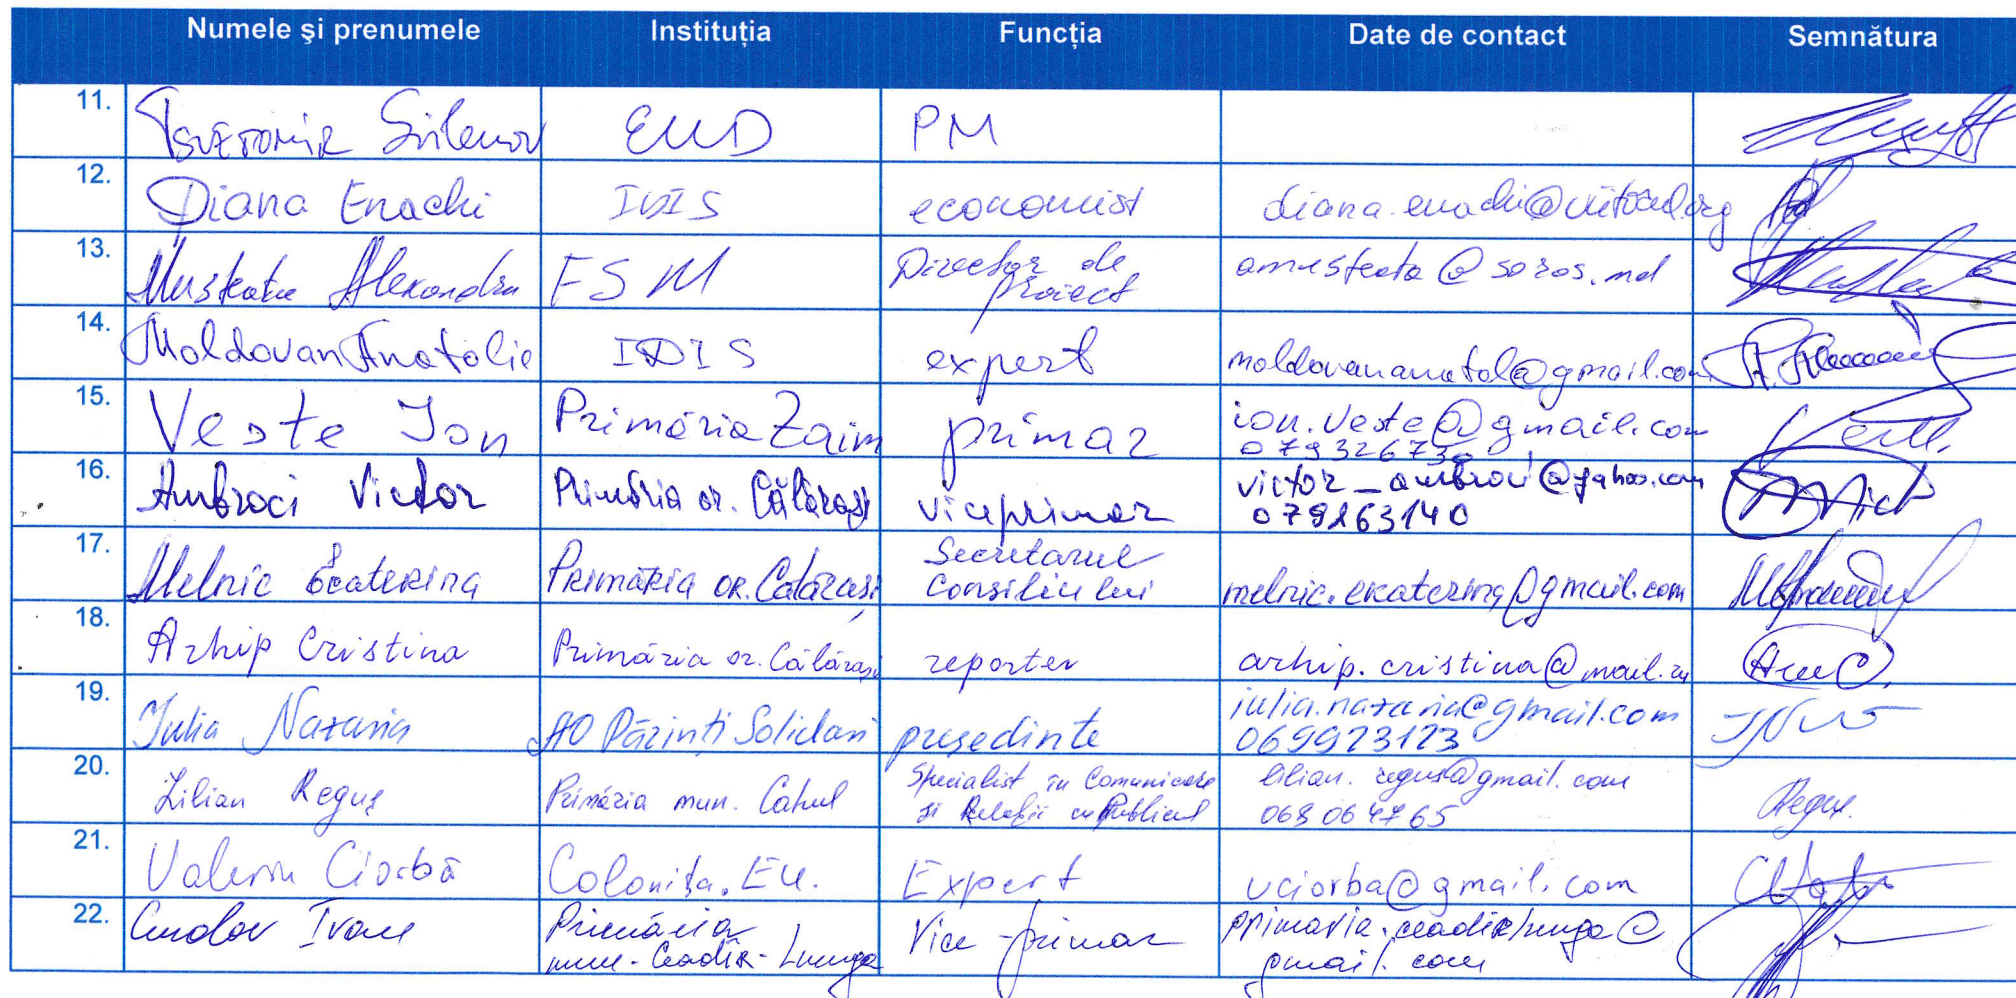 Numele și prenumele Instituția Funcția Date de contact Semnătura
11. Tsvetomir EUD PM
12. Diana Enachi IDIS economist diana.enachi@viitorul.org
13. Alexandru FSM Director de
proiect amusteata@soros.md
14. Moldovan Anatolie IDIS expert moldovananatol@gmail.com
15. Veste Ion Primăria Zaim primar ion.veste@gmail.com
16. Ambroci Victor Primăria or. Călărași viceprimar victor_ambroci@yahoo.com
079263140
17. Melnic Ecaterina Primăria or. Călărași Secretarul
Consiliului melnic.ekaterina@gmail.com
18. Arhip Cristina Primăria or. Călărași reporter arhip.cristina@mail.ru
19. Iulia Nazaria AO Părinți Solidari președinte iulia.nazaria@gmail.com
069923123
20. Lilian Reguș Primăria mun. Cahul Specialist în Comunicare
și Relații cu Publicul lilian.regus@gmail.com
068064765
21. Valeriu Ciorbă Colonița.Eu. Expert vciorba@gmail.com
22. Ivan Primăria
mun. Ceadîr-Lunga Vice-primar primaria.ceadirlunga@
gmail.com